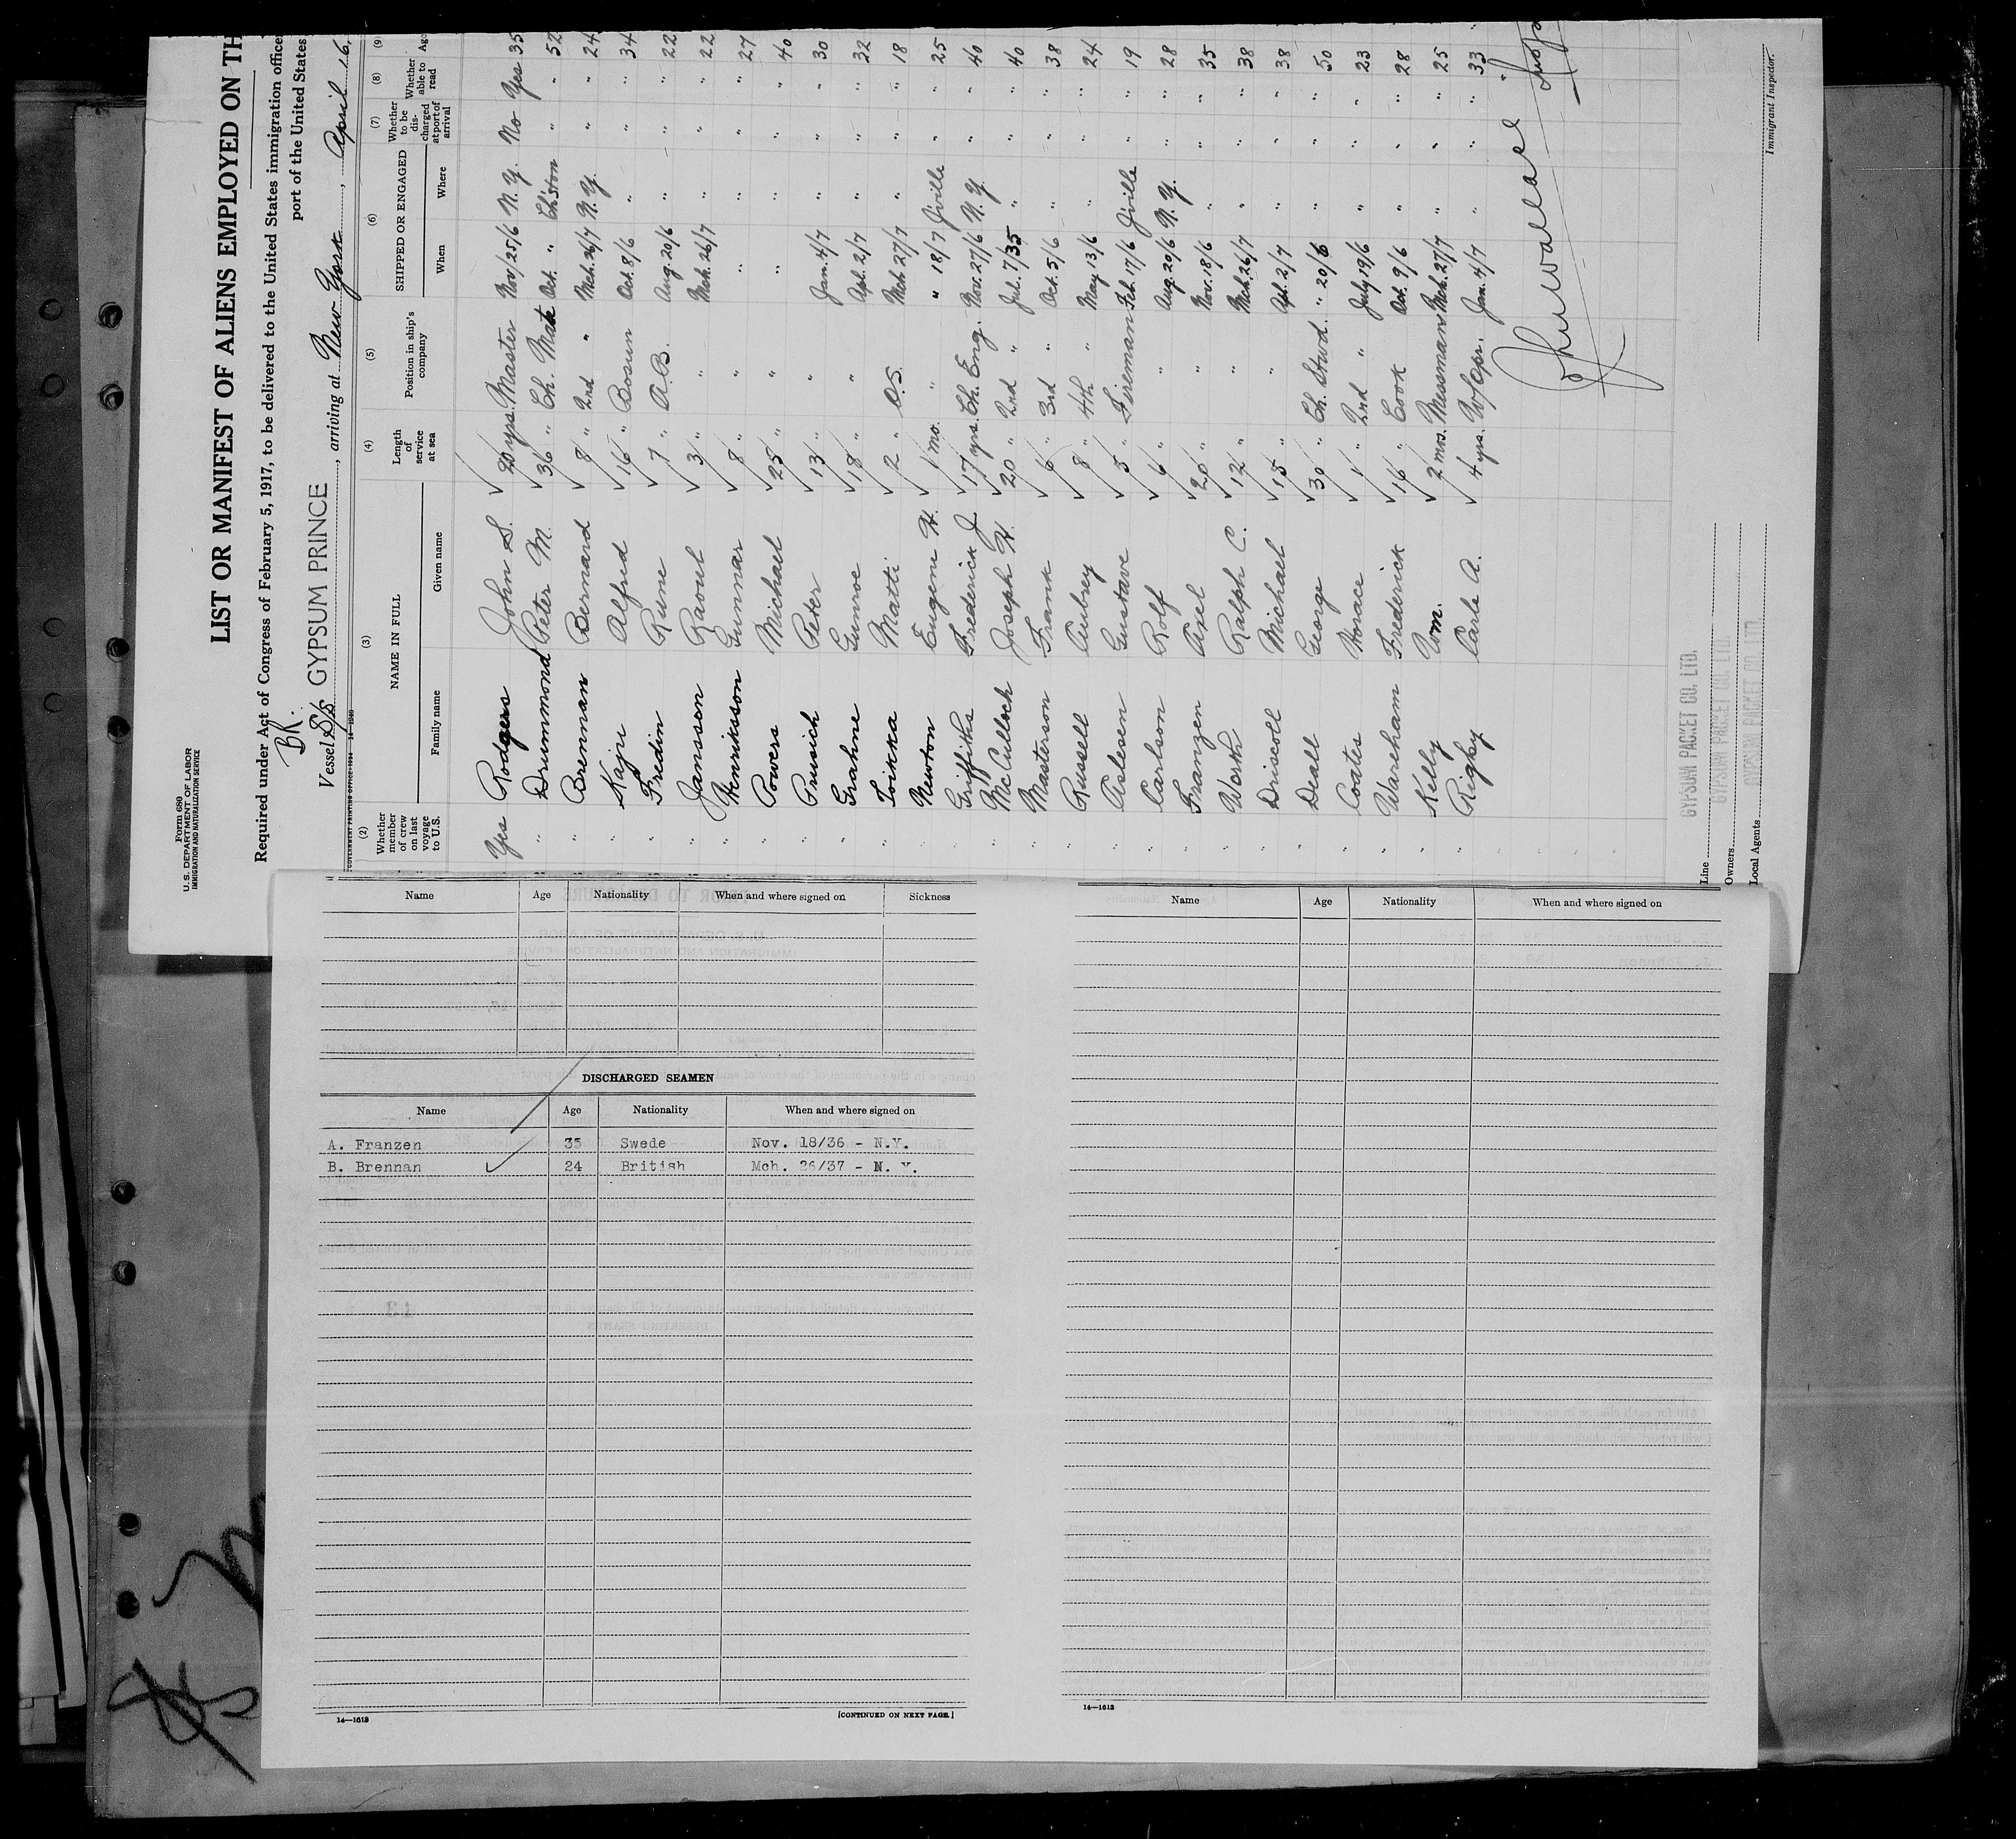 Form 680
U. S. DEPARTMENT OF LABOR
IMMIGRATION AND NATURALIZATION SERVICE
LIST OR MANIFEST OF ALIENS EMPLOYED ON TH
Required under Act of Congress of February 5, 1917, to be delivered to the United States immigration office
port of the United States
BR.
Vessel S/S GYPSUM PRINCE, arriving at New York, April 16,
(2) (3) (4) (5) (6) (7) (8) (9)
Whether member of crew on last voyage to U.S. NAME IN FULL Family name Given name Length of service at sea Position in ship's company SHIPPED OR ENGAGED When Where Whether to be discharged at port of arrival Whether able to read Age
Yes Rodgers John S. 20 yrs. Master Nov/25/6 N.Y. No Yes 35
" Drummond Peter M. 36 " Ch. Mate Oct. " Ch'ston " " 52
" Brennan Bernard 8 " 2nd " Mch. 26/7 N.Y. " " 24
" Kaju Alfred 16 " Bosun Oct. 8/6 " " " 34
" Fredin Rune 7 " A.B. Aug. 20/6 " " " 22
" Janssen Raoul 3 " " Mch. 26/7 " " " 22
" Henriksson Gunnar 8 " " " " " " 27
" Powers Michael 25 " " " " " " 40
" Prusich Peter 13 " " Jan. 4/7 " " " 30
" Grahne Gunroe 18 " " Apl. 2/7 " " " 32
" Toikka Matti 2 " O.S. Mch. 27/7 " " " 18
" Newton Eugene H. 1 mo. " " 18/7 J'ville " " 25
" Griffiths Frederick J. 17 yrs. Ch. Eng. Nov. 27/6 N.Y. " " 40
" McCulloch Joseph H. 20 " 2nd " Jul. 7/35 " " " 40
" Masterson Frank 6 " 3rd " Oct. 5/6 " " " 38
" Russell Aubrey 8 " 4th " May 13/6 " " " 24
" Aslesen Gustave 5 " Fireman Feb. 17/6 J'ville " " 19
" Carlson Rolf 6 " " Aug. 20/6 N.Y. " " 28
" Franzen Axel 20 " " Nov. 18/6 " " " 35
" Worth Ralph C. 12 " " Mch. 26/7 " " " 38
" Driscoll Michael 15 " " Apl. 2/7 " " " 38
" Deall George 30 " Ch. Stwd. " 20/6 " " " 50
" Coates Horace 1 " 2nd " July 19/6 " " " 23
" Wareham Frederick 16 " Cook Oct. 9/6 " " " 28
" Kelly Wm. 2 mos. Messman Mch. 27/7 " " " 25
" Rigby Carle A. 4 yrs. W/Opr. Jan. 4/7 " " " 33
Line GYPSUM PACKET CO. LTD.
Owners GYPSUM PACKET CO. LTD.
Local Agents GYPSUM PACKET CO. LTD.
Immigrant Inspector.
Name Age Nationality When and where signed on Sickness
DISCHARGED SEAMEN
Name Age Nationality When and where signed on
A. Franzen 35 Swede Nov. 18/36 - N.Y.
B. Brennan 24 British Mch. 26/37 - N. Y.
14—1613
[CONTINUED ON NEXT PAGE.]
Name Age Nationality When and where signed on
14—1613